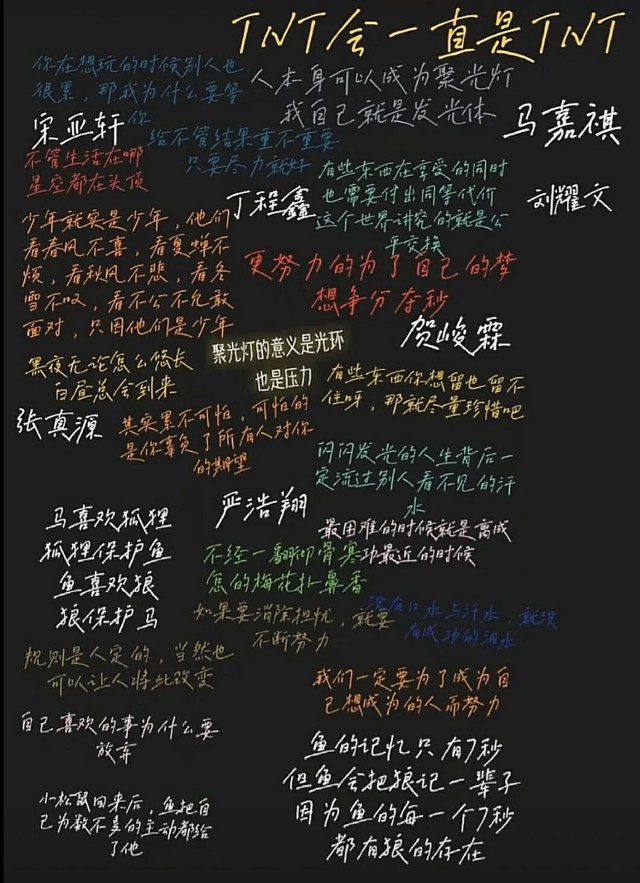 TNT会一直是TNT
你在想玩的时候别人也
很累，那我为什么要等
你
人本身可以成为聚光灯
我自己就是发光体
宋亚轩
马嘉祺
给不管结果重不重要
只要尽力就好
不管生活在哪
星座都在头顶
有些东西在享受的同时
也需要付出同等代价
这个世界讲究的就是公
平交换
丁程鑫
刘耀文
少年就实是少年，他们
看春风不喜，看夏蝉不
烦，看秋风不悲，看冬
雪不叹，看不公不允敢
面对，只因他们是少年
更努力的为了自己的梦
想争分夺秒
贺峻霖
黑夜无论怎么悠长
白昼总会到来
聚光灯的意义是光环
也是压力
有些东西你想留也留不
住呀，那就尽量珍惜吧
张真源
其实累不可怕，可怕的
是你辜负了所有人对你
的期望
闪闪发光的人生背后一
定流过别人看不见的汗
水
严浩翔
马喜欢狐狸
狐狸保护鱼
鱼喜欢狼
狼保护马
最困难的时候就是离成
功最近的时候
不经一翻彻骨寒
怎的梅花扑鼻香
如果要消除担忧，就要
不断努力
没有口水与汗水，就没
有成功的泪水
规则是人定的，当然也
可以让人将此改变
我们一定要为了成为自
己想成为的人而努力
自己喜欢的事为什么要
放弃
鱼的记忆只有7秒
但鱼会把狼记一辈子
因为鱼的每一个7秒
都有狼的存在
小松鼠回来后，鱼把自
己为数不多的主动都给
了他